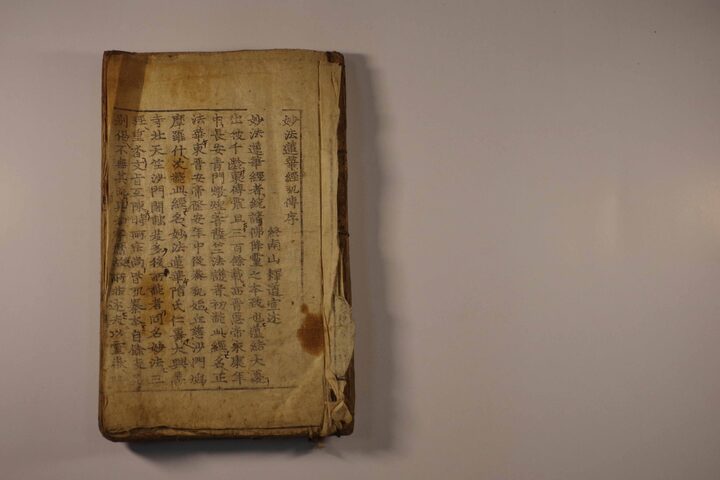 妙法蓮華經弘傳序
終南山釋道宣述
妙法蓮華經者統諸佛降靈之本致也蘊結大夏
出彼千齡東傳震旦三百餘載西晉惠帝永康年
中長安青門燉煌菩薩竺法護者初翻此經名正
法華東晉安帝隆安年中後秦弘始丘慈沙門鳩
摩羅什次翻此經名妙法蓮華隋氏仁壽大興善
寺北天竺沙門闍那笈多後所翻者同名妙法三
經重沓文旨互陳時所宗尚皆弘秦本自餘支
別偈不無其流具如序曆故所非述夫以靈